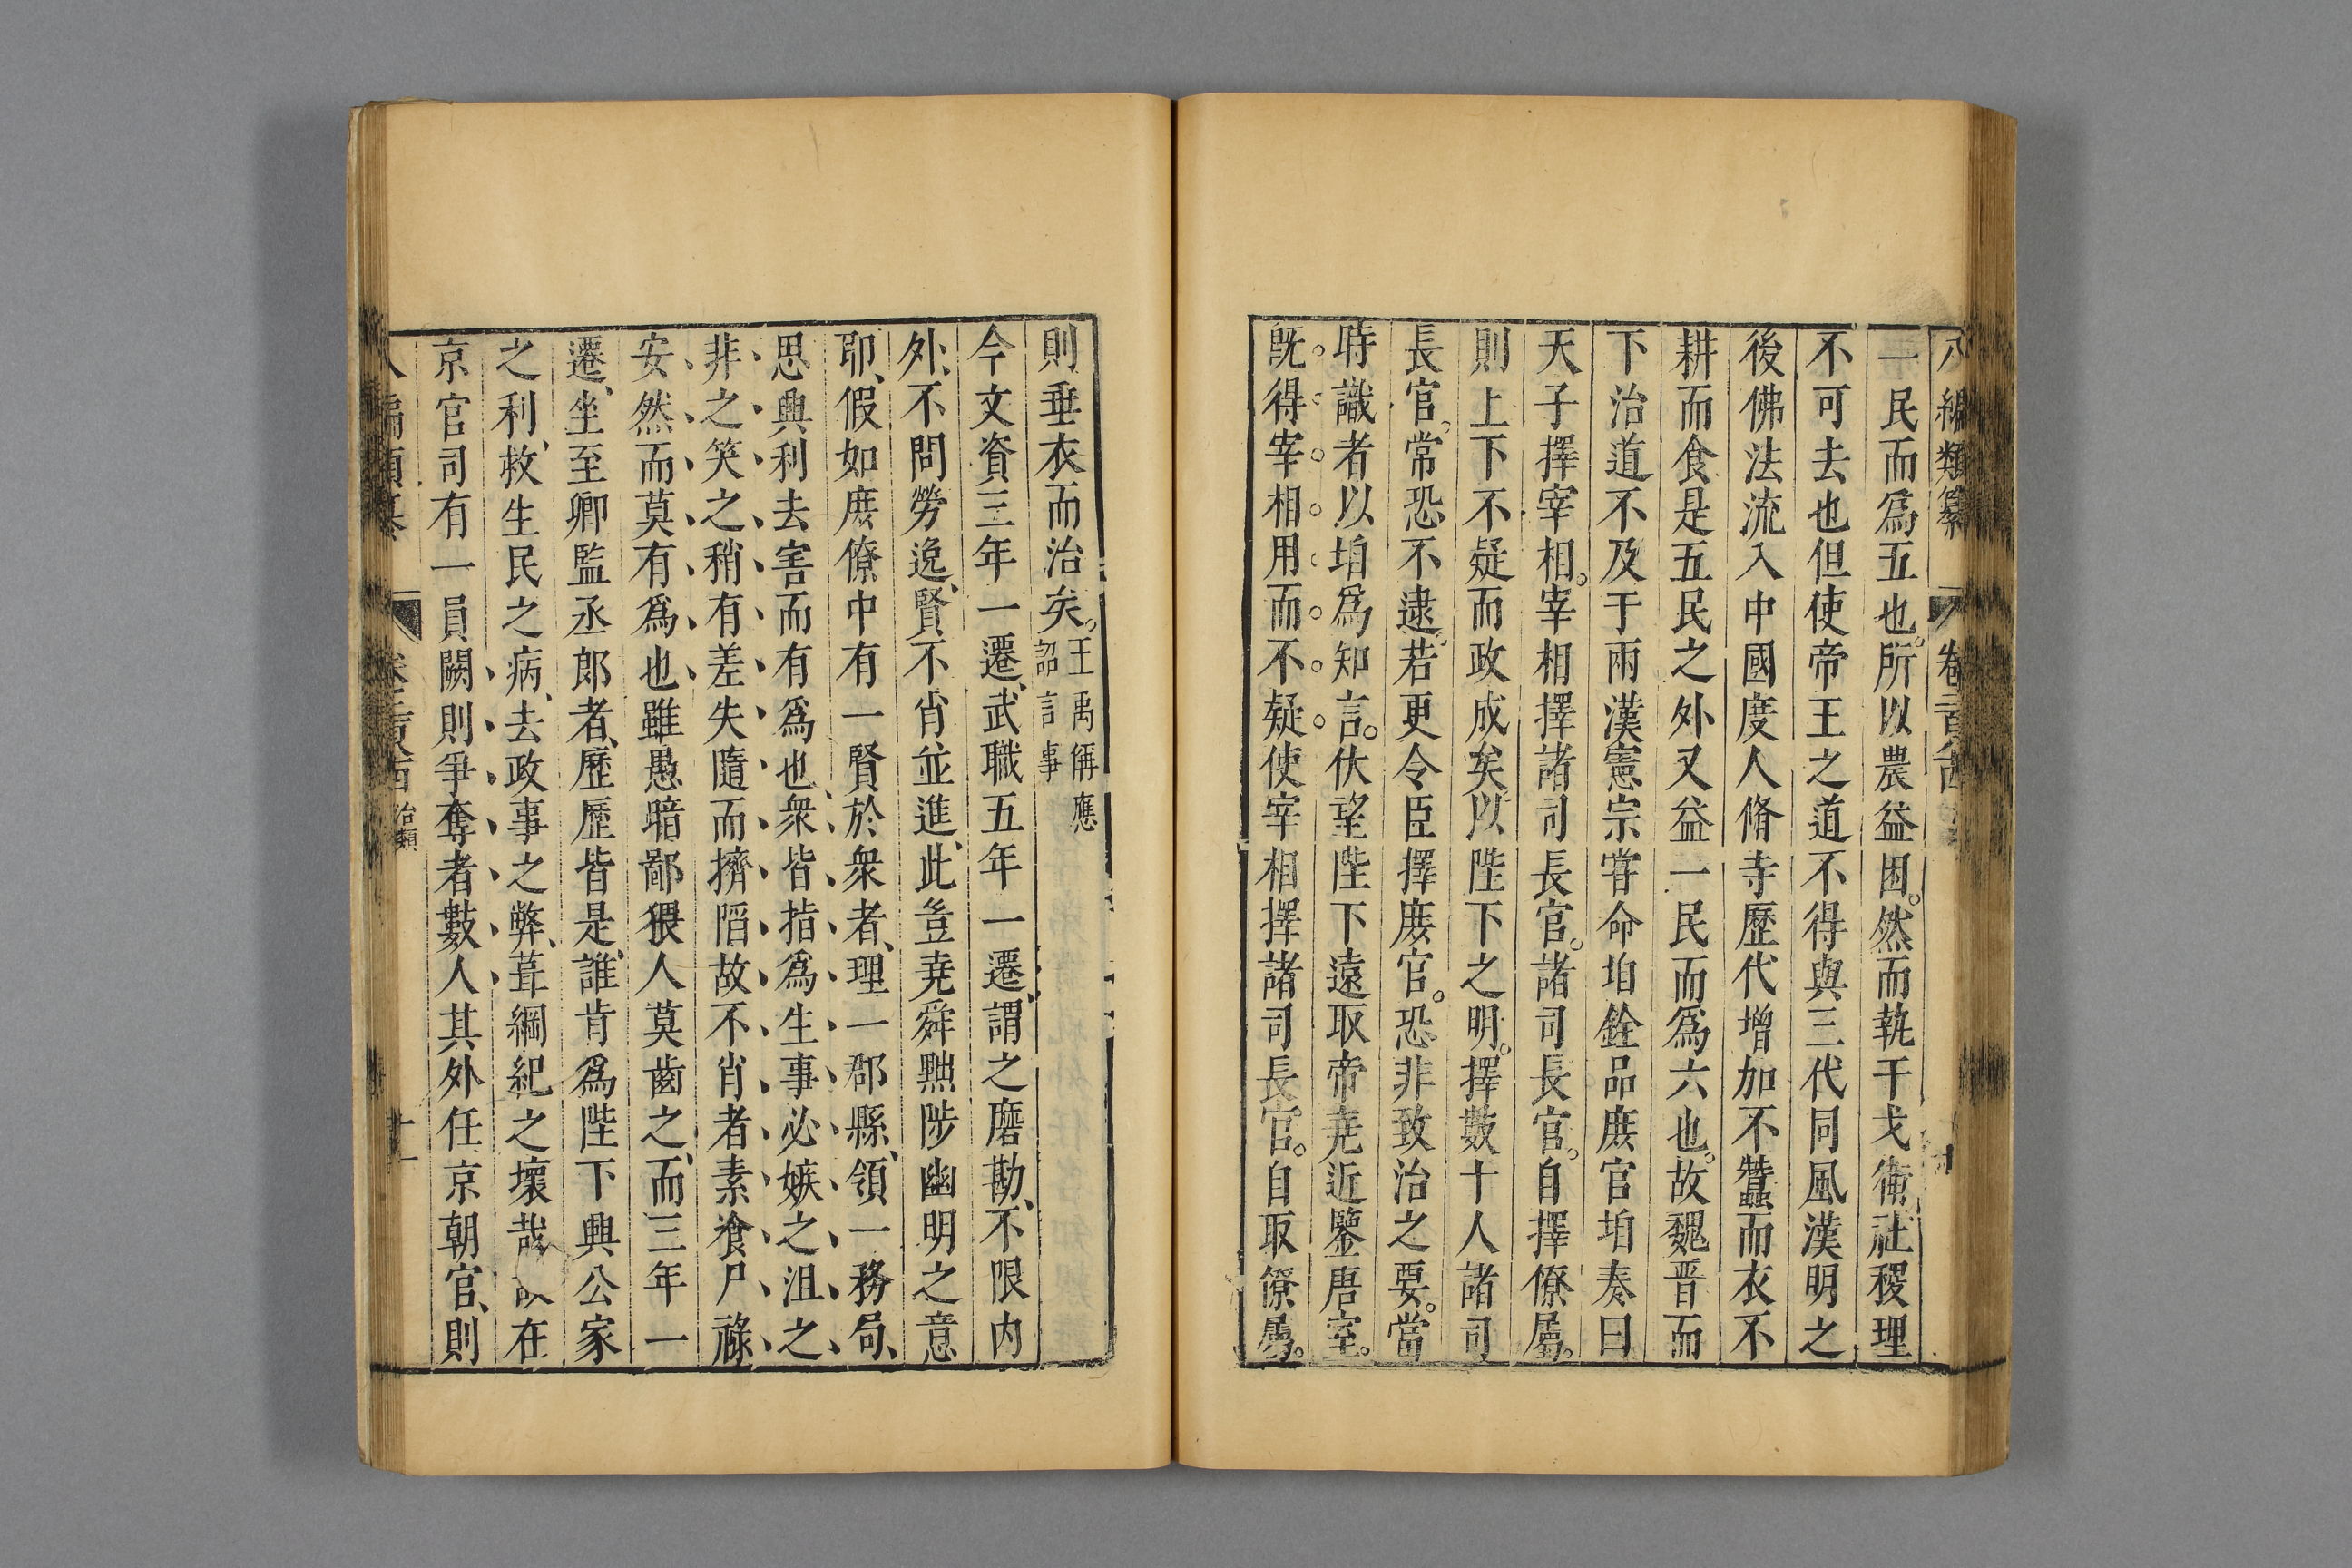 編類纂 卷
一民而爲五也。所以農益困。然而執干戈衛社稷理
不可去也但使帝王之道不得與三代同風漢明之
後佛法流入中國度人脩寺歷代增加不蠶而衣不
耕而食是五民之外又益一民而爲六也。故魏晋而
下治道不及于兩漢憲宗嘗命垍銓品庻官垍奏曰
天子擇宰相。宰相擇諸司長官。諸司長官。自擇僚屬。
則上下不疑而政成矣以陛下之明。擇數十人諸司
長官。常恐不逮。若更令臣擇庻官。恐非致治之要。當
時識者以垍爲知言。伏望陛下遠取帝尭近鑒唐室。
旣得宰相用而不疑使宰相擇諸司長官。自取僚屬。
則垂衣而治矣。王禹偁應詔言事
今文資三年一遷、武職五年一遷、謂之磨勘、不限内
外、不問勞逸、賢不肖並進、此豈尭舜黜陟幽明之意
耶、假如庻僚中有一賢於衆者、理一郡縣、領一務局、
思興利去害而有爲也衆皆指爲生事必嫉之沮之
非之笑之稍有差失隨而擠䧟故不肖者素飡尸祿
安然而莫有爲也雖愚暗鄙猥人莫齒之、而三年一
遷、坐至卿監丞郎者、歷歷皆是、誰肯爲陛下興公家
之利、救生民之病、去政事之弊、葺綱紀之壞哉故在
京官司有一員闕則爭奪者數人其外任京朝官、則
治類 十一